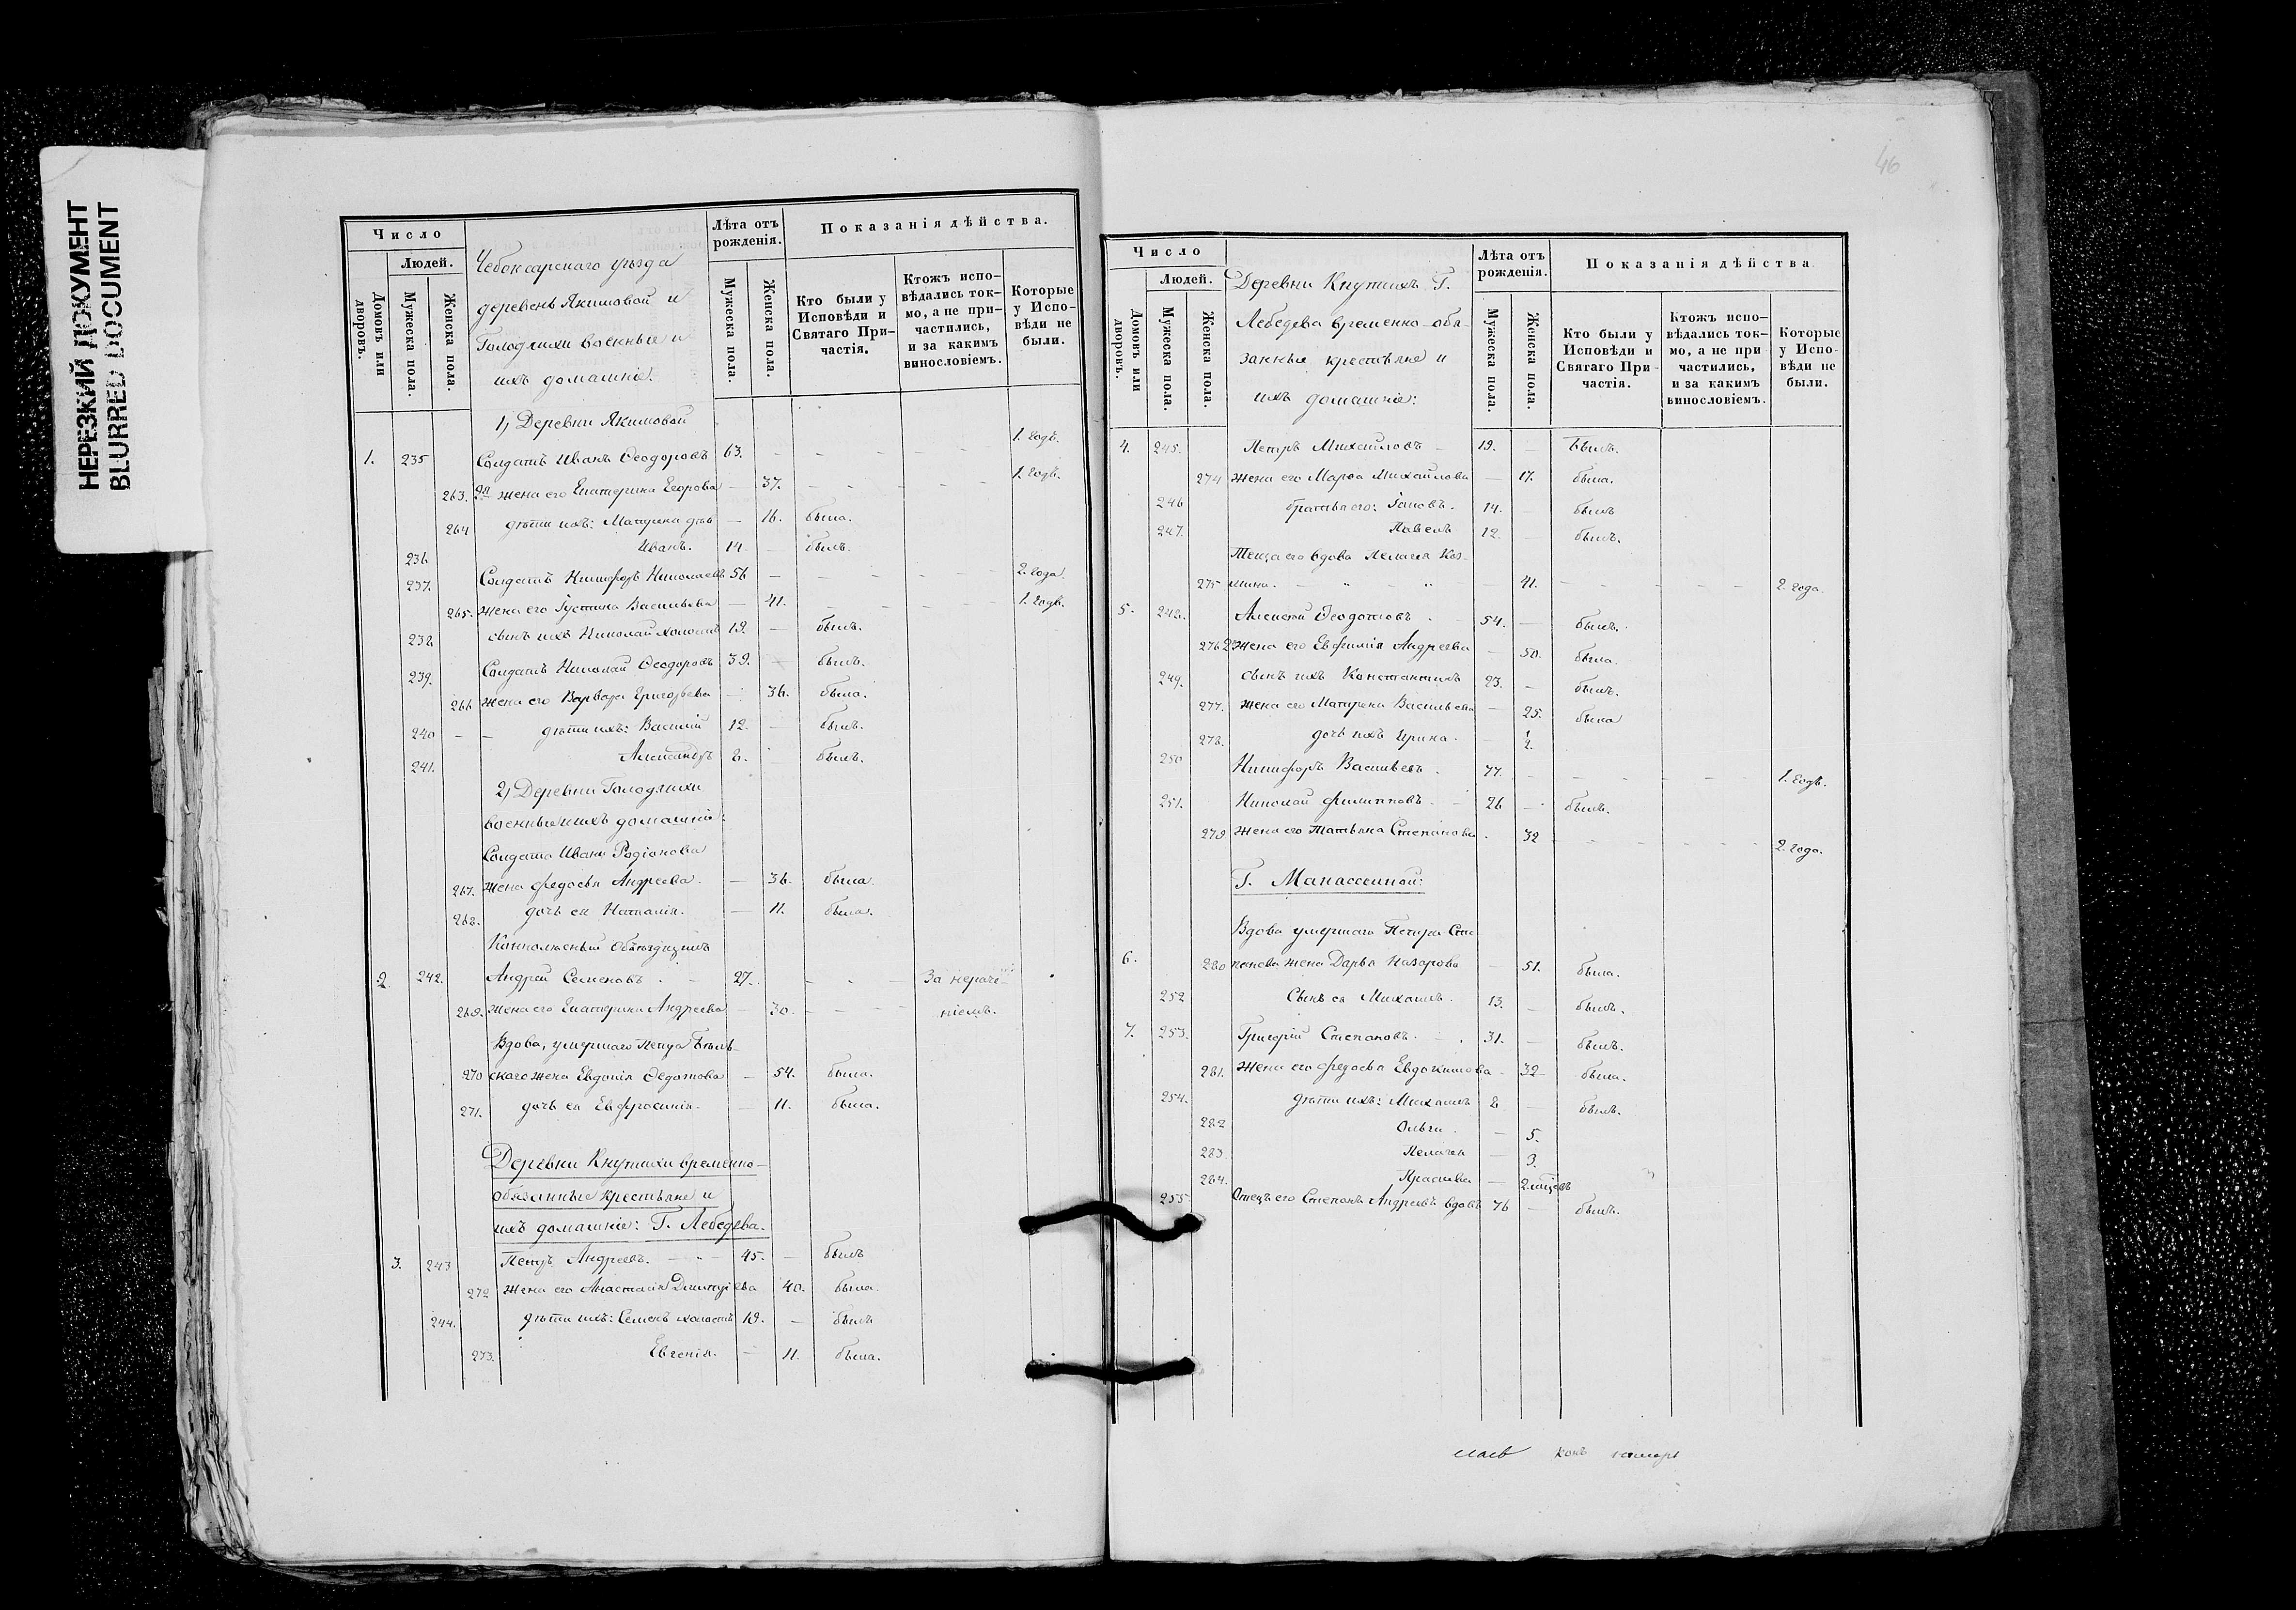 НЕРЕЗКИЙ ДОКУМЕНТ
BLURRED DOCUMENT
Число
Людей.
Домовъ или дворовъ.
Мужеска пола.
Женска пола.
Чебоксарскаго уѣзда
деревень Якимовой и
Голодяихи военные и
ихъ домашніе.
Лѣта отъ рожденія.
Мужеска пола.
Женска пола.
Показанія дѣйства.
Кто были у Исповѣди и Святаго Причастія.
Ктожъ исповѣдались токмо, а не причастились, и за какимъ винословіемъ.
Которые у Исповѣди не были.
1, Деревни Якимовой
1. 235 Солдатъ Иванъ Ѳеодоровъ 63. - - - - 1. годъ.
263. 2я жена его Екатерина Егорова — 37. - - - - 1. годъ.
264 дѣти ихъ: Матрена дѣв — 16. была.
236 Иванъ. 14. - былъ.
237. Солдатъ Никифоръ Николаевъ 56 — - - - - 2. года.
265. жена его Іустина Васильева — 41. - - - - 1. годъ.
238 сынъ ихъ Николай холостъ 19. — былъ.
239. Солдатъ Николай Ѳеодоровъ 39. — былъ.
266 жена его Варвара Григорьева — 36. была.
240 - - дѣти ихъ: Василій 12. - былъ.
241. Александръ 8. - былъ.
2, Деревни Голодяихи
военные и ихъ домашніе:
Солдата Ивана Родіонова
267. жена Федосья Андреева. — 36. была.
268. дочь ея Наталія. — 11. была.
Коннолѣсный Объѣздчикъ
2. 242. Андрей Семеновъ. - 27. - - - За нераче-
269. жена его Екатерина Андреева - 30. - - - ніемъ.
Вдова, умершаго Петра Бѣль-
270 скаго жена Евдокія Ѳедотова — 54. была.
271. дочь ея Евфросинія. — 11. была.
Деревни Кнутихи временно-
обязанные крестьяне и
ихъ домашніе: Г. Лебедева.
3. 243 Петръ Андреевъ. — „ — 45. — былъ
272 жена его Анастасія Димитріева 40. была.
244. дѣти ихъ: Семенъ холостъ 19. — былъ
273. Евгенія. — 11. была.
46
Число
Людей.
Домовъ или дворовъ.
Мужеска пола.
Женска пола.
Деревни Кнутихъ Г.
Лебедева временно-обя-
занные крестьяне и
ихъ домашніе:
Лѣта отъ рожденія.
Мужеска пола.
Женска пола.
Показанія дѣйства
Кто были у Исповѣди и Святаго Причастія.
Ктожъ исповѣдались токмо, а не при частились, и за какимъ винословіемъ.
Которые у Исповѣди не были.
4. 245. Петръ Михайловъ — 19. — былъ.
274 жена его Марѳа Михайлова — 17. была.
246 братья его: Іаковъ. 14. - былъ
247. Павелъ 12. - былъ.
Теща его вдова Пелагія Коз-
275 мина. — „ „ — 41. - - - - 2. года.
5. 248. Алексѣй Ѳеодотовъ. - 54. — былъ.
276 2я жена его Евфимія Андреева — 50. была.
249. сынъ ихъ Константинъ 23. - былъ.
277. жена его Матрена Васильева — 25. была
278. дочь ихъ Ирина. - 1/2.
250 Никифоръ Васильевъ. 77. - - - - - 1. годъ.
251. Николай Филипповъ. - 26 - былъ.
279 жена его Татьяна Степанова. 32 - - - - 2. года.
Г. Манассеиной:
Вдова умершаго Петра Сте
6. 280 панова жена Дарья Назарова — 51. была.
252 Сынъ ея Михаилъ. 13. - былъ.
7. 253. Григорій Степановъ. — . 31. — былъ.
281. жена его Федосья Евдокимова - 32 - была.
254. дѣти ихъ: Михаилъ 8 — былъ.
282 Ольга. — 5.
283 Пелагея — 3.
284. Прасковья — 2.мѣсяц
255. Отецъ его Степанъ Андреевъ вдовъ 76 — былъ.